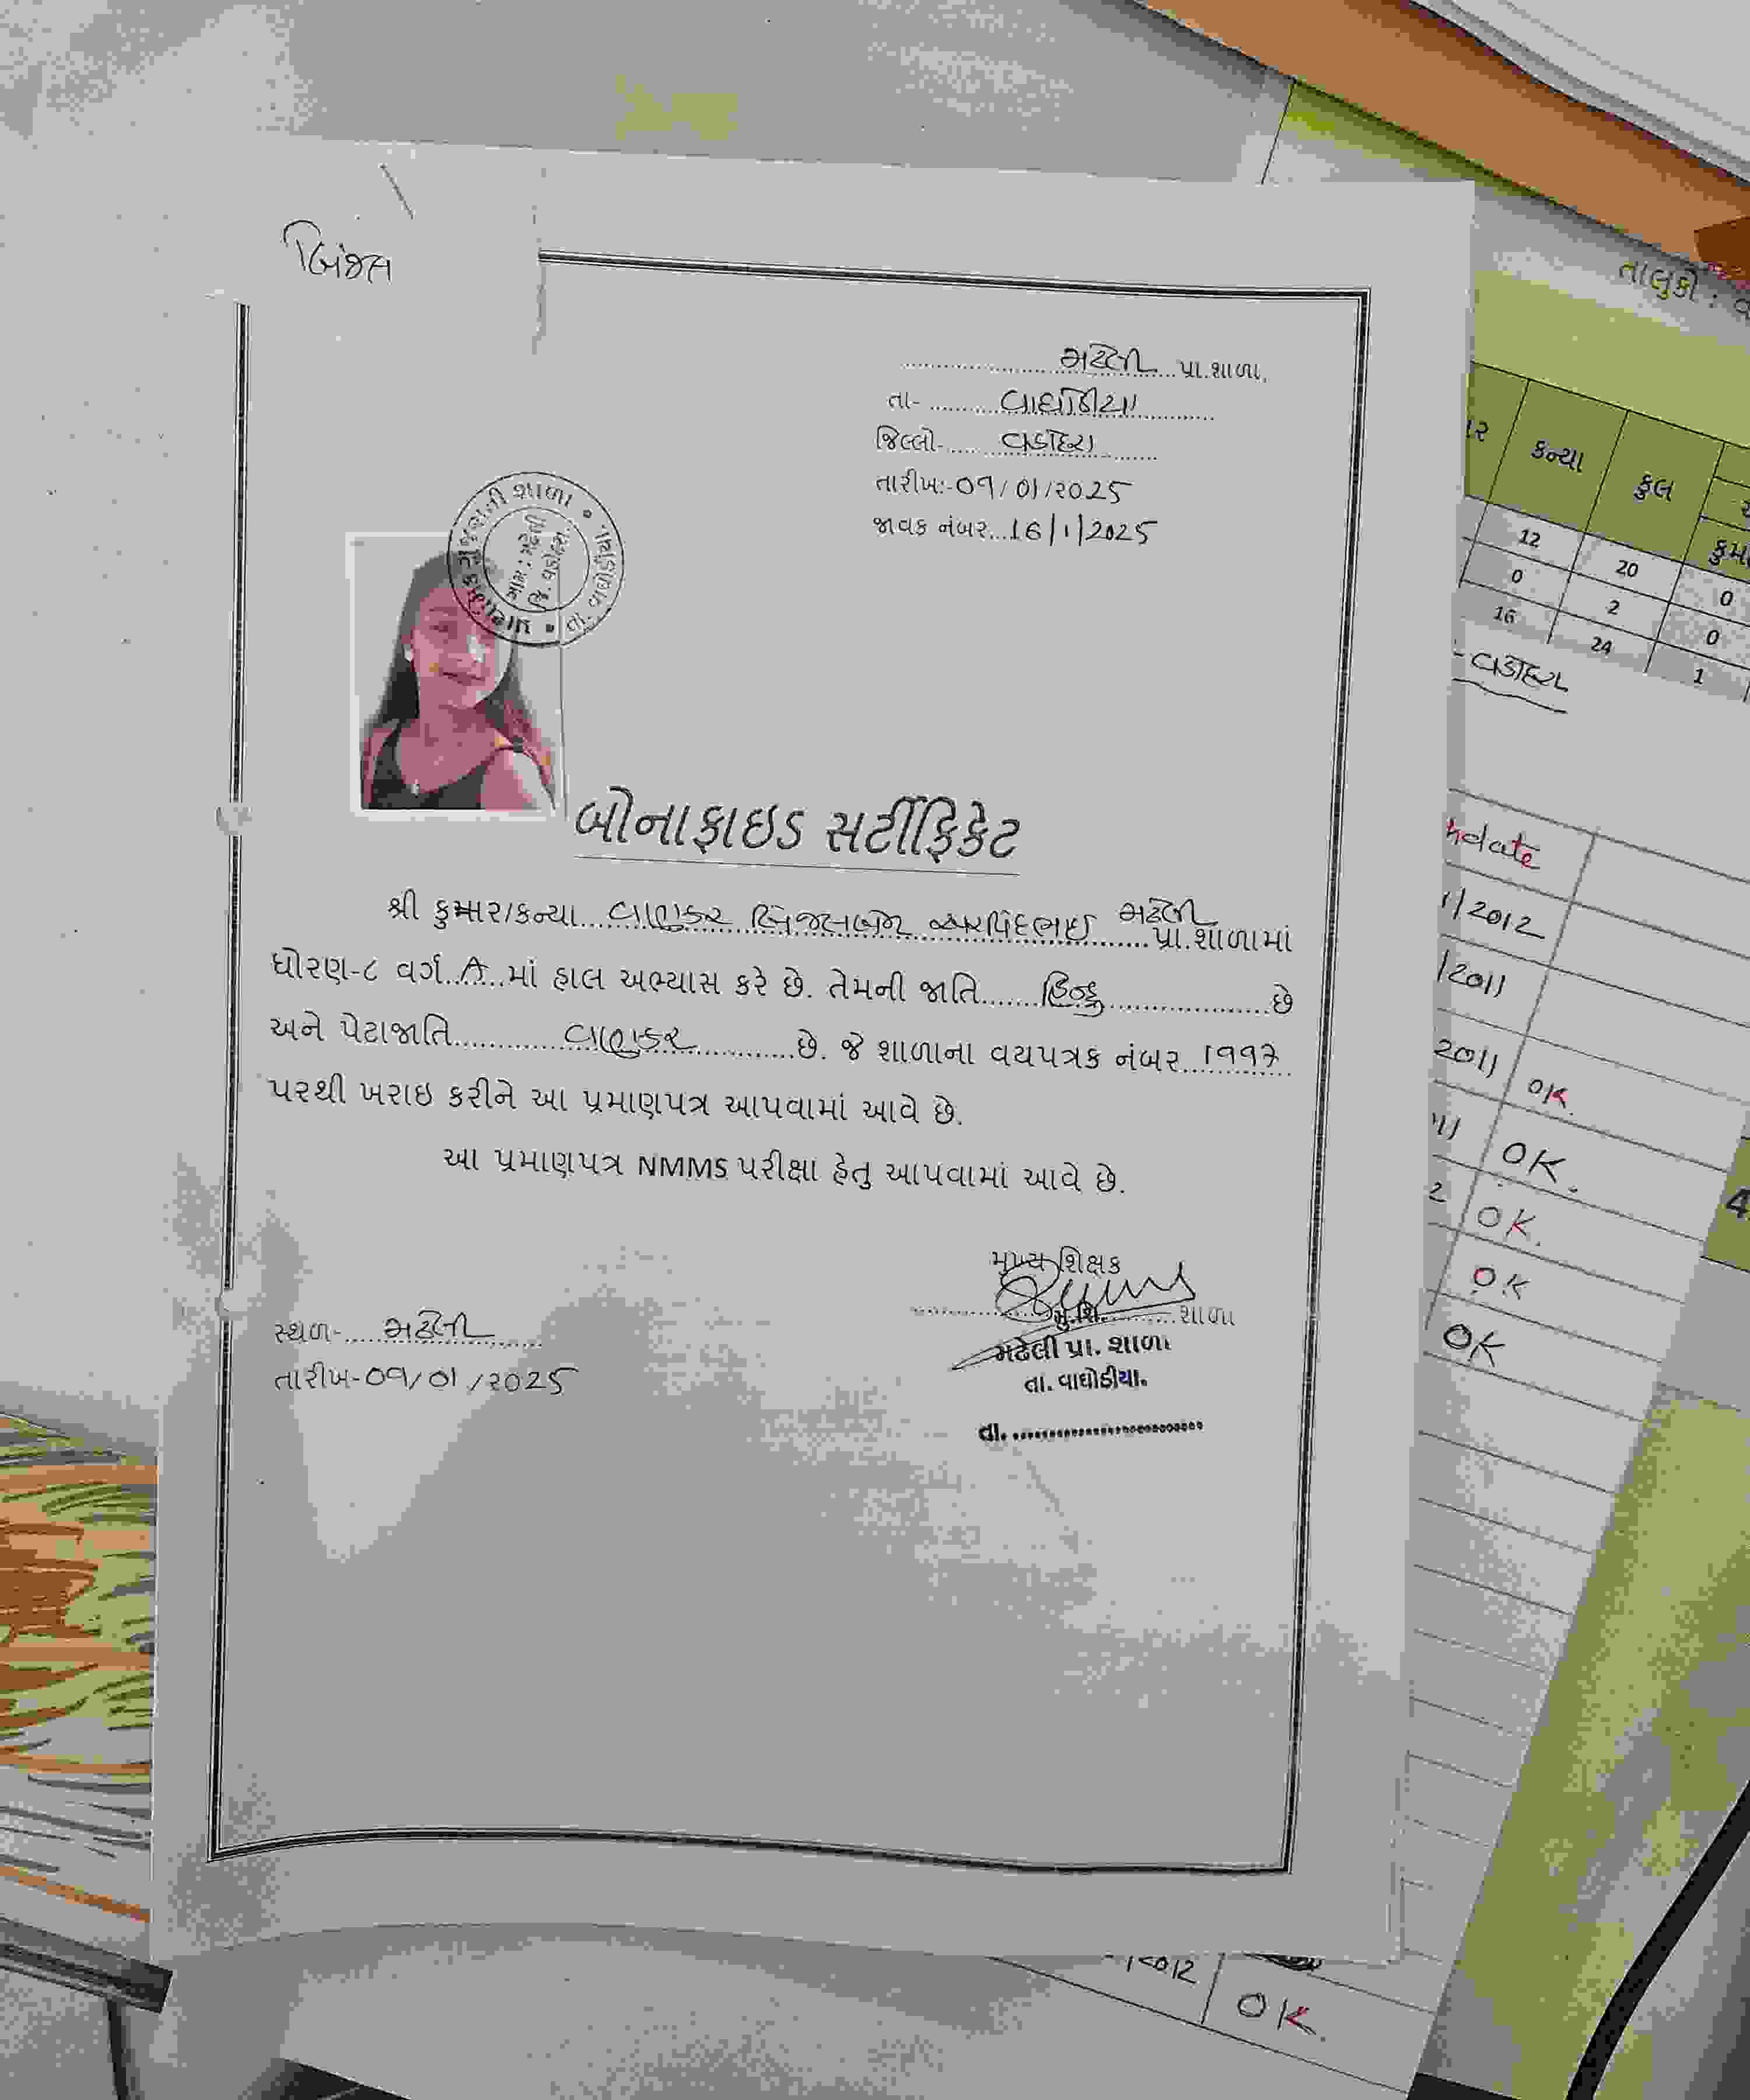 બિંજલ
મઢેલી પ્રા.શાળા.
તા- વાઘોડિયા
જિલ્લો- વડોદરા
તારીખ:-૦૧/૦૧/૨૦૨૫
જાવક નંબર...16/1/2025
બોનાફાઇડ સર્ટીફિકેટ
શ્રી કુમાર/કન્યા...વાણકર બિંજલબેન અરવિંદભાઇ મઢેલી પ્રા.શાળામાં
ધોરણ-૮ વર્ગ..A..માં હાલ અભ્યાસ કરે છે. તેમની જાતિ......હિન્દુ......છે
અને પેટાજાતિ......વાણકર......છે. જે શાળાના વયપત્રક નંબર...૧૯૧૭
પરથી ખરાઇ કરીને આ પ્રમાણપત્ર આપવામાં આવે છે.
આ પ્રમાણપત્ર NMMS પરીક્ષા હેતુ આપવામાં આવે છે.
મુખ્ય શિક્ષક
મુ.શિ. શાળા
મઢેલી પ્રા. શાળા
તા. વાઘોડીયા.
તા. ..........................
સ્થળ-....મઢેલી
તારીખ-૦૧/૦૧/૨૦૨૫
તાલુકો :
કન્યા કુલ
12 20 0
0 2 0
16 24 1
- વડોદરા
1/2012
/2011
2011 OK.
OK.
2 OK.
OK
OK
4
OK.